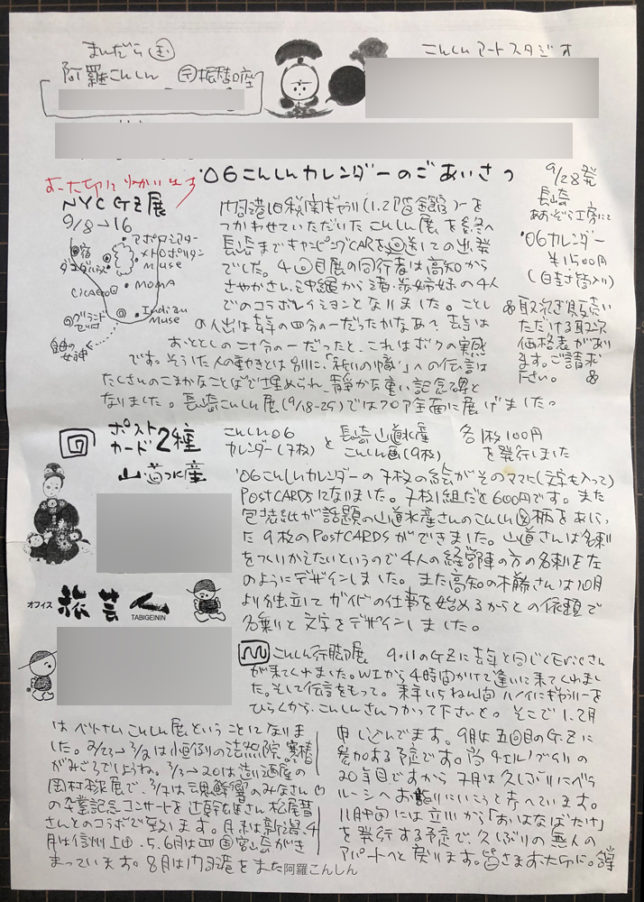 まんだら
阿羅こんしん
振替口座
こんしんアートスタジオ
'06こんしんカレンダーのごあいさつ
NYC GZ展
9/8→16
アポロシアター
メトロポリタン
Muse
MOMA
Indian
Muse
をつかわせていただいたこんしん展を終へ
長崎までキャンピングCARを回送しての出発
でした。4回目展の同行者は高知から
さやかさん、沖縄から清・恭姉妹の4人
でのコラボレイションとなりました。ことし
の人出は去年の四分の一だったかなあ?去年は
おととしの二十分の一だったと、これはボクの実感
です。そうした人の動きとは別に、「祈りの幡」への伝言は
たくさんのこまかなことばで埋められ、静かな重い記念碑と
なりました。長崎こんしん展(9/18-25)ではフロア全面に展げました。
9/28発
長崎
あおぞら工房にて
'06カレンダー
¥1500円
お取次ぎ販売い
ただける取次
価格表があり
ます。ご請求
下さい。
ポスト
カード2種
山道水産
こんしん06
カレンダー(7枚)
と
長崎山道水産
こんしん画(9枚)
各1枚100円
を発行しました
'06こんしんカレンダーの7枚の絵がそのママに(文字も入って)
POSTCARDSになりました。7枚1組だと600円です。また
包装紙が話題の山道水産さんのこんしん図柄をあしらっ
た9枚のPOSTCARDSができました。山道さんは名刺
をつくりかえたいというので4人の経営陣の方の名刺を左
のようにデザインしました。また高知の木藤さんは10月
より独立してガイドの仕事を始めるからとの依頼で
名乗りと文字をデザインしました。
オフィス 旅芸人
TABIGEININ
こんしん行脚展 9・11のGZに去年と同じくEricさん
が来てくれました。WIから4時間かけて逢いに来てくれまし
た。そして伝言をもって。来年いちねん間ハノイにギャラリーを
ひらくから、こんしんさんつかって下さいと。そこで1、2月
はベトナムこんしん展ということになりま
した。2/23→3/2は恒例の法然院、寒椿
がみごろでしょうね。3/3→20は造り酒屋の
岡村邸展で、3/12は魂鮮響のみなさん
の卒業記念コンサートを
さんとのコラボで迎えます。月末は新潟、4
月は信州上田、5、6月は四国宮山祭がき
まっています。8月は内子港をまた
申し込んでます。9月は五回目のGZに
参加する予定です。尚チェルノブイリの
20年目ですから7月は久しぶりにベラ
ルーシへお参りにいこうと考へています。
11月中旬には立川から「おはなばたけ」
を発行する予定で、久しぶりの無人の
アパートへと戻ります。皆さまお大切に。
阿羅こんしん